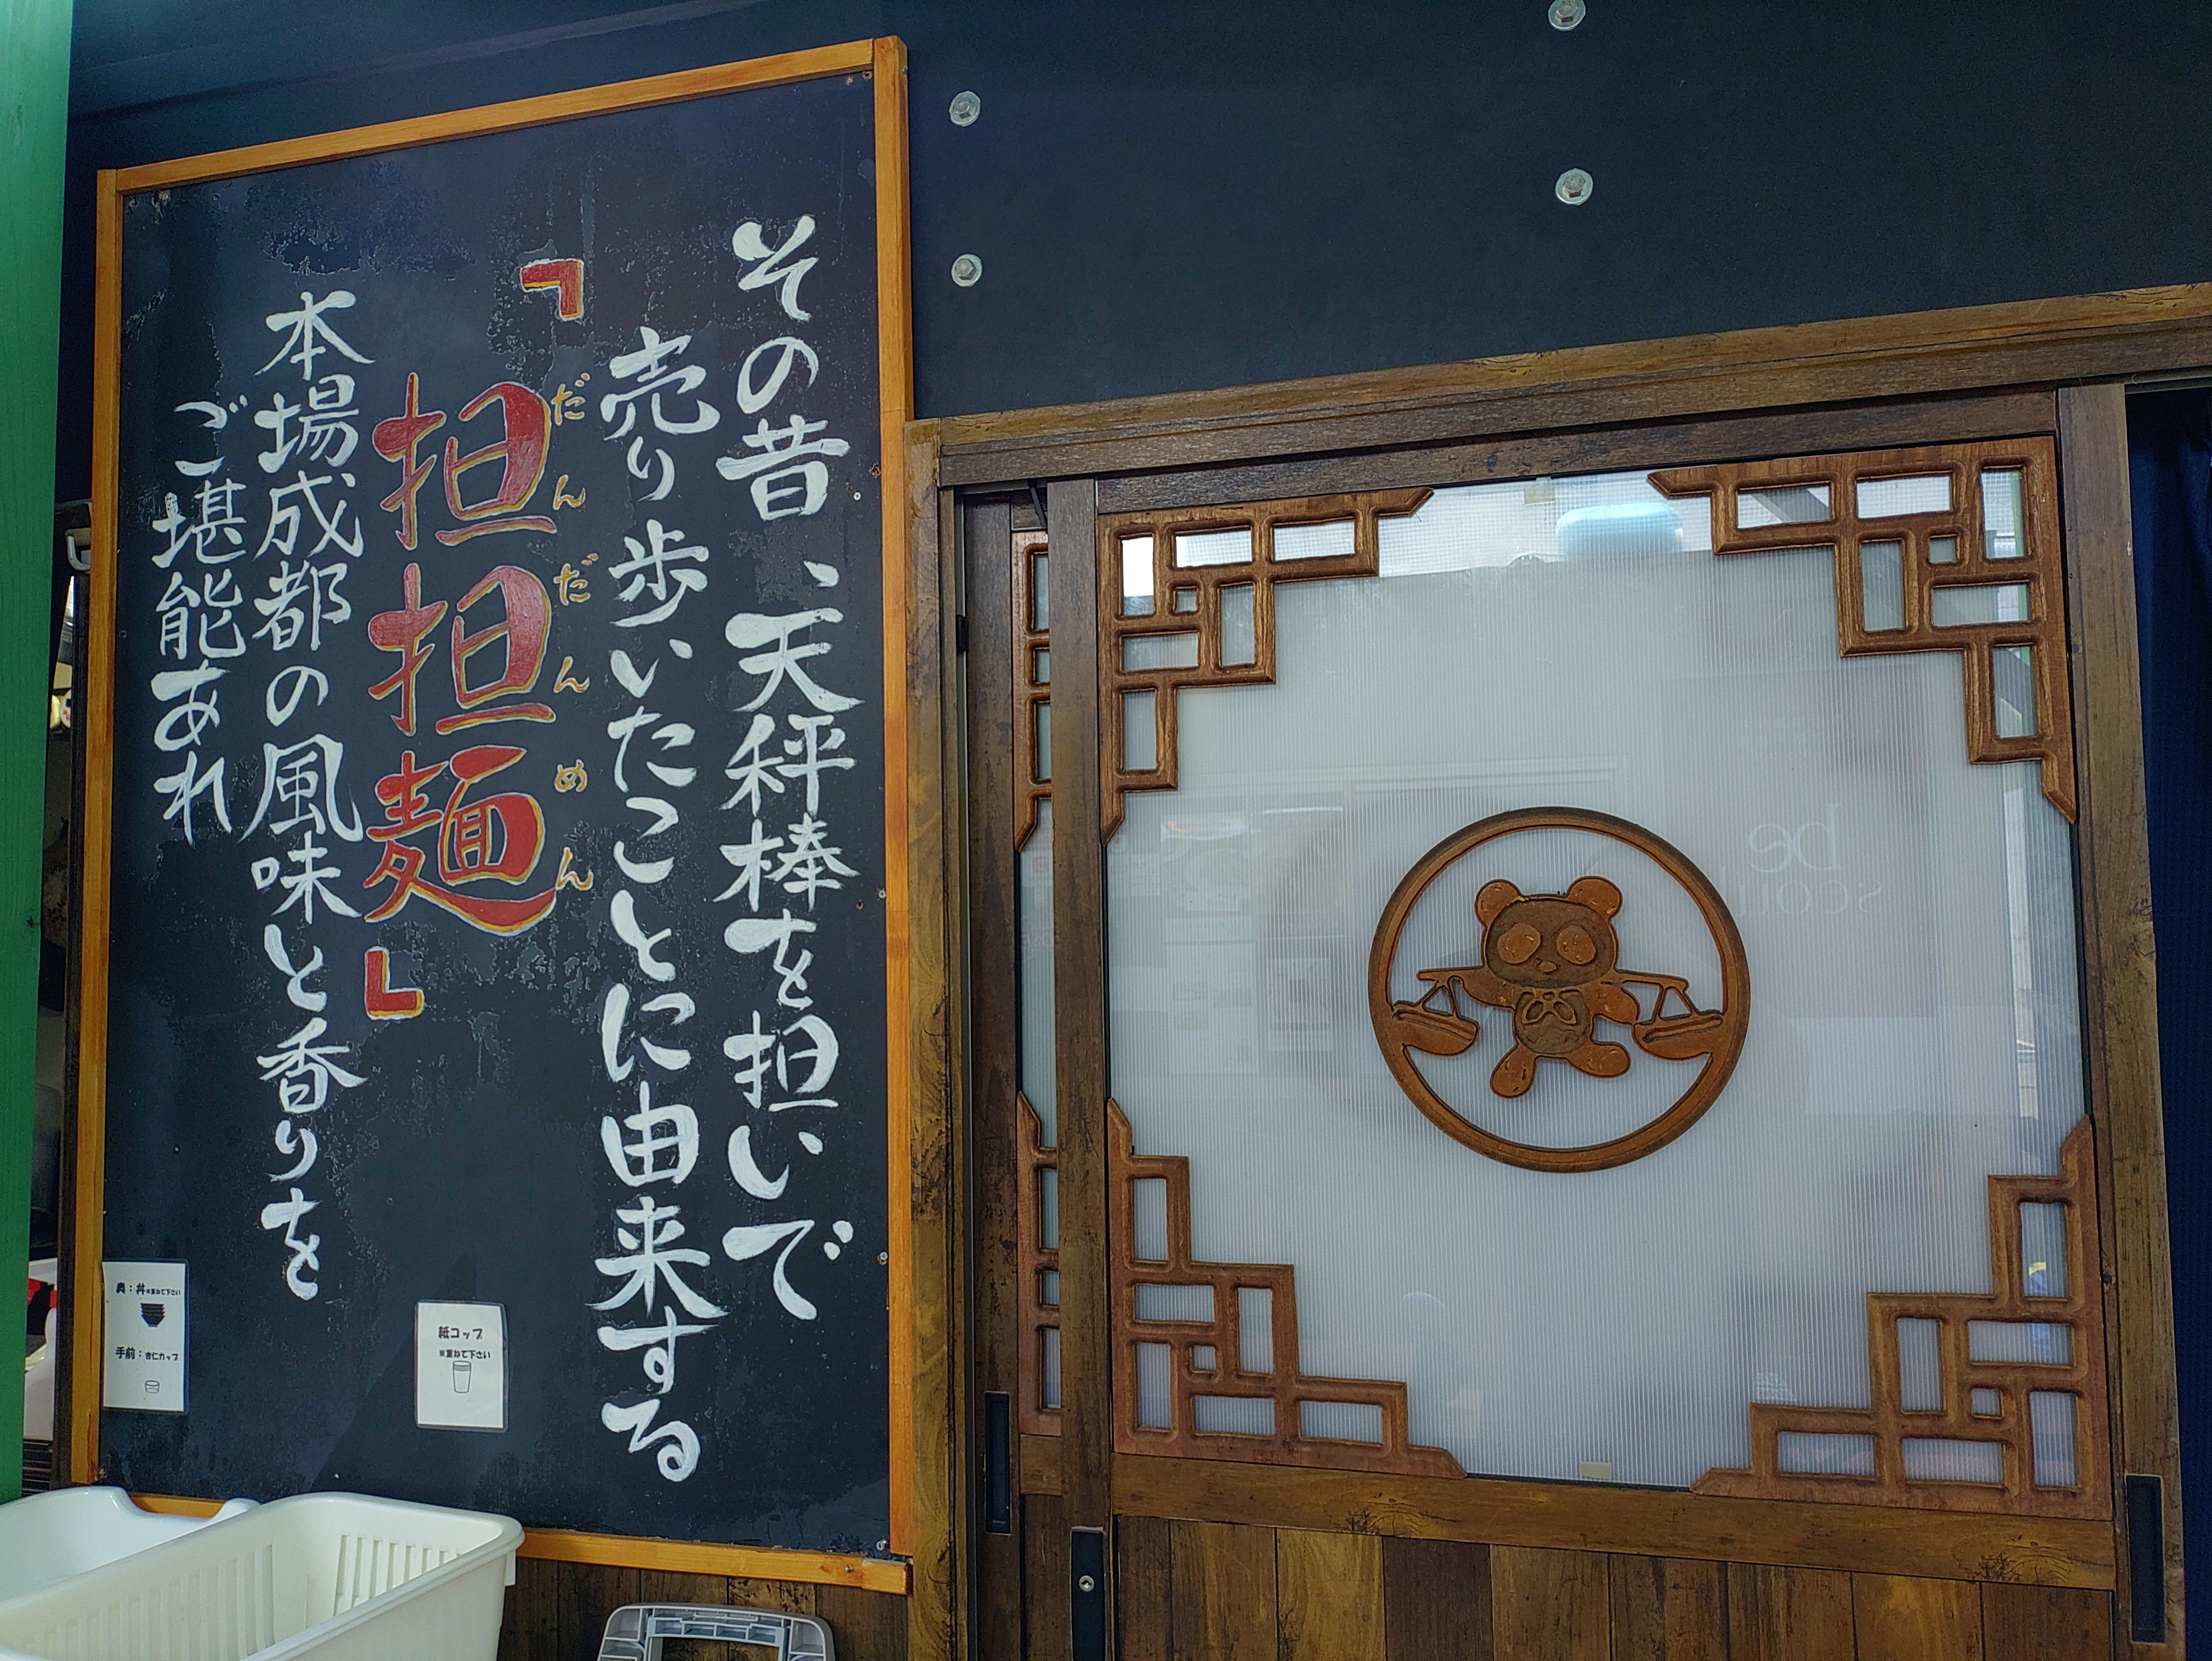 その昔、天秤棒を担いで
売り歩いたことに由来する
「担担麺」
だんだんめん
本場成都の風味と香りを
ご堪能あれ
奥：丼※重ねて下さい
手前：杏仁カップ
紙コップ
※重ねて下さい
be